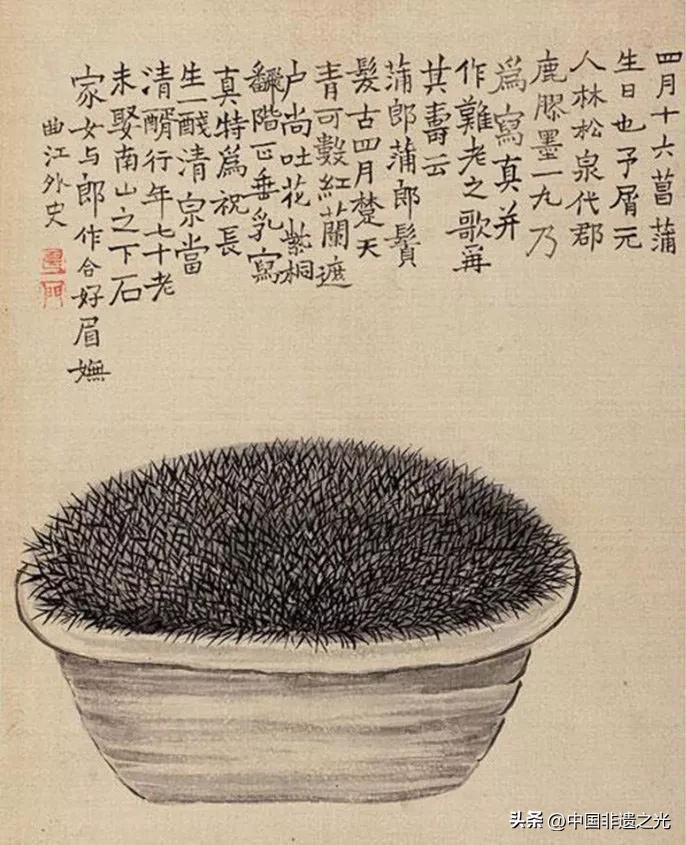 四月十六菖蒲
生日也予屑元
人林松泉代郡
鹿膠墨一丸乃
為寫真并
作難老之歌爯
其壽云
蒲郎蒲郎鬚
髮古四月楚天
青可數紅蘭遮
户尚吐花紫桐
翻階正垂乳寫
真特為祝長
生一醆清泉當
清醑行年七十老
未娶南山之下石
家女与郎作合好眉嫵
曲江外史
头条 @中国非遗之光